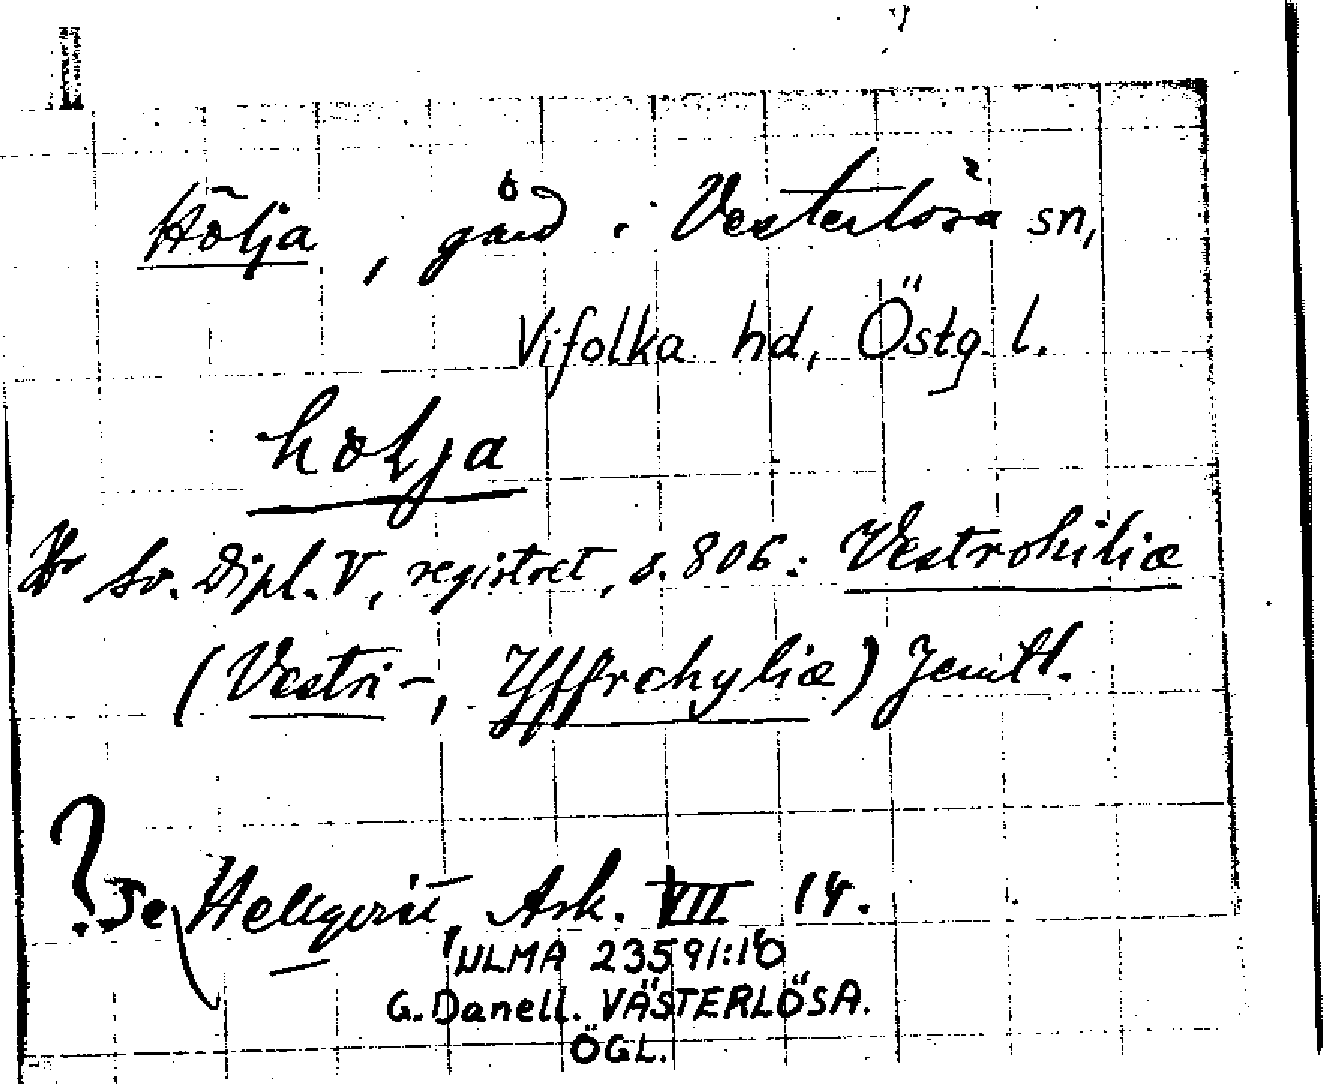 Hölja, gård i Vesterlösa sn,
Vifolka hd, Östg. l.
holja
Sv. Dipl. V, registret, s. 806: Vestrohiliæ
(Vestri-, Yffrehyliæ) Jemtl.
? Se Hellqvist, Ark. VII 14.
ULMA 23591:10
G. Danell. VÄSTERLÖSA.
ÖGL.